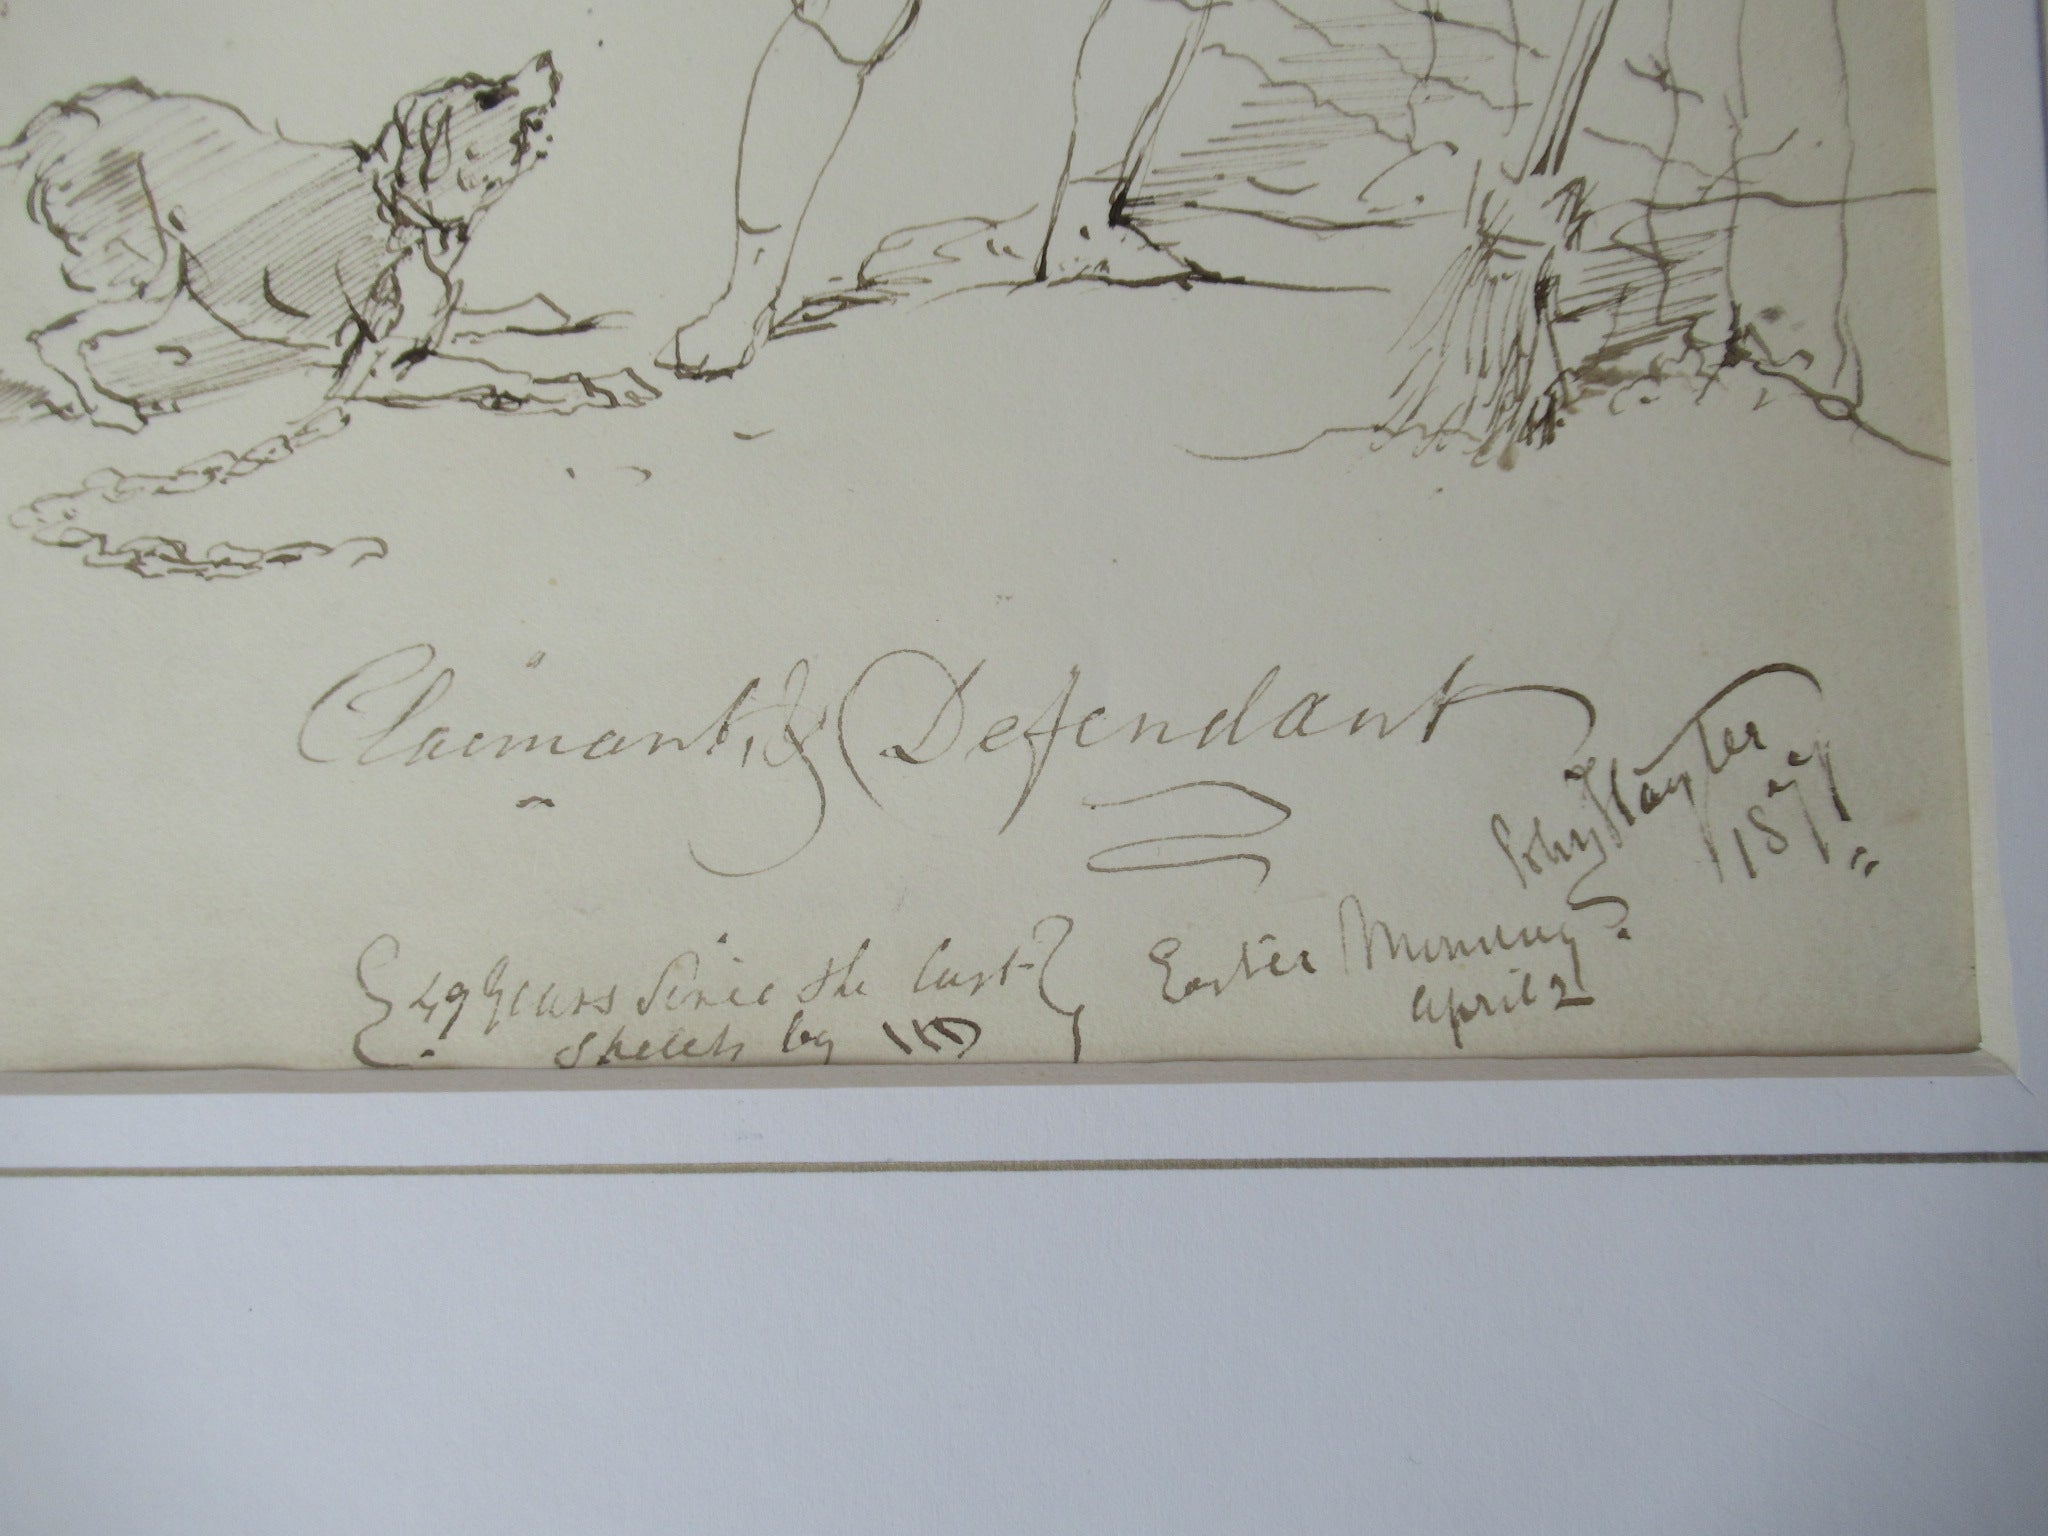 Claimant, & Defendant
John Hayter
1877
{ 49 Years Since the last }
sketch by
Easter Morning.
april 2